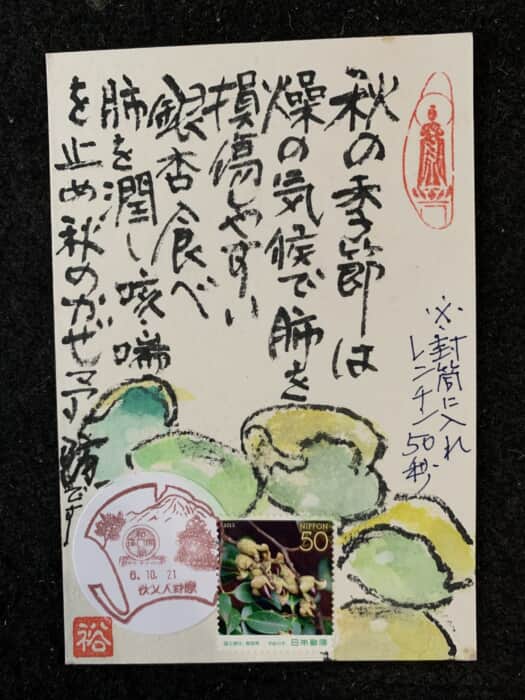 秋の季節は
燥の気候で肺を
損傷しやすい
銀杏食べ
肺を潤し咳・喘
を止め秋のかぜ
です
※封筒に入れ
レンチン50秒
6.10.21
秩父大野原
2013
NIPPON
50
日本郵便
裕